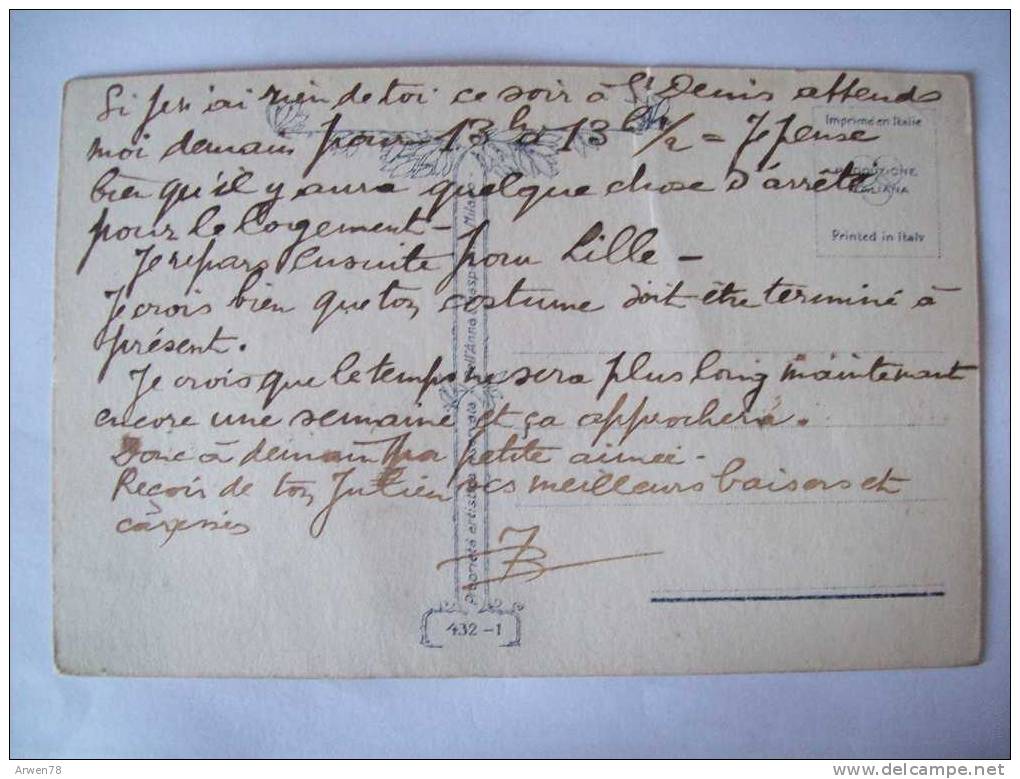 Si je n'ai rien de toi ce soir à St Denis attends
moi demain pour 13h à 13h 1/2 = Je pense
bien qu'il y aura quelque chose d'arrêté
pour le logement -
Je repars ensuite pour Lille -
Je crois bien que ton costume doit être terminé à
présent.
Je crois que le temps ne sera plus long maintenant
encore une semaine et ça approchera.
Donc à demain ma petite aimée -
Reçois de ton Julien ses meilleurs baisers et
caresses
JB
Imprimé en Italie
PRODUZIONE
ITALIANA
Printed in Italy
Proprietà artistica dell'Anna Milano
432-1
Arwen78
www.delcampe.net